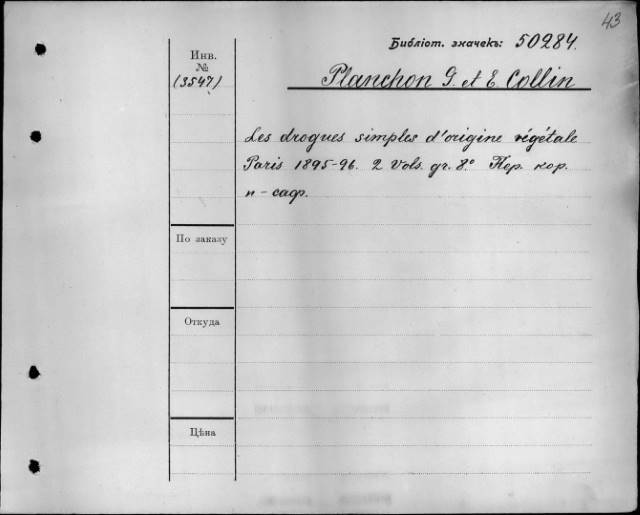 43
Библіот. значекъ: 50284.
Инв.
№
(3547)
Planchon G. et E. Collin
Les drogues simples d'origine végétale
Paris 1895-96. 2 Vols. gr. 8º Пер. кор.
п-саф.
По заказу
Откуда
Цѣна